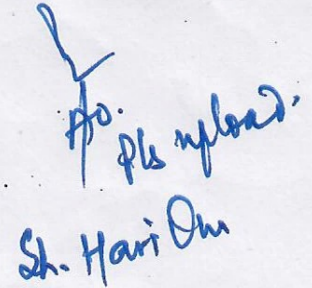 AO.
Pls upload.
Sh. Hari Om